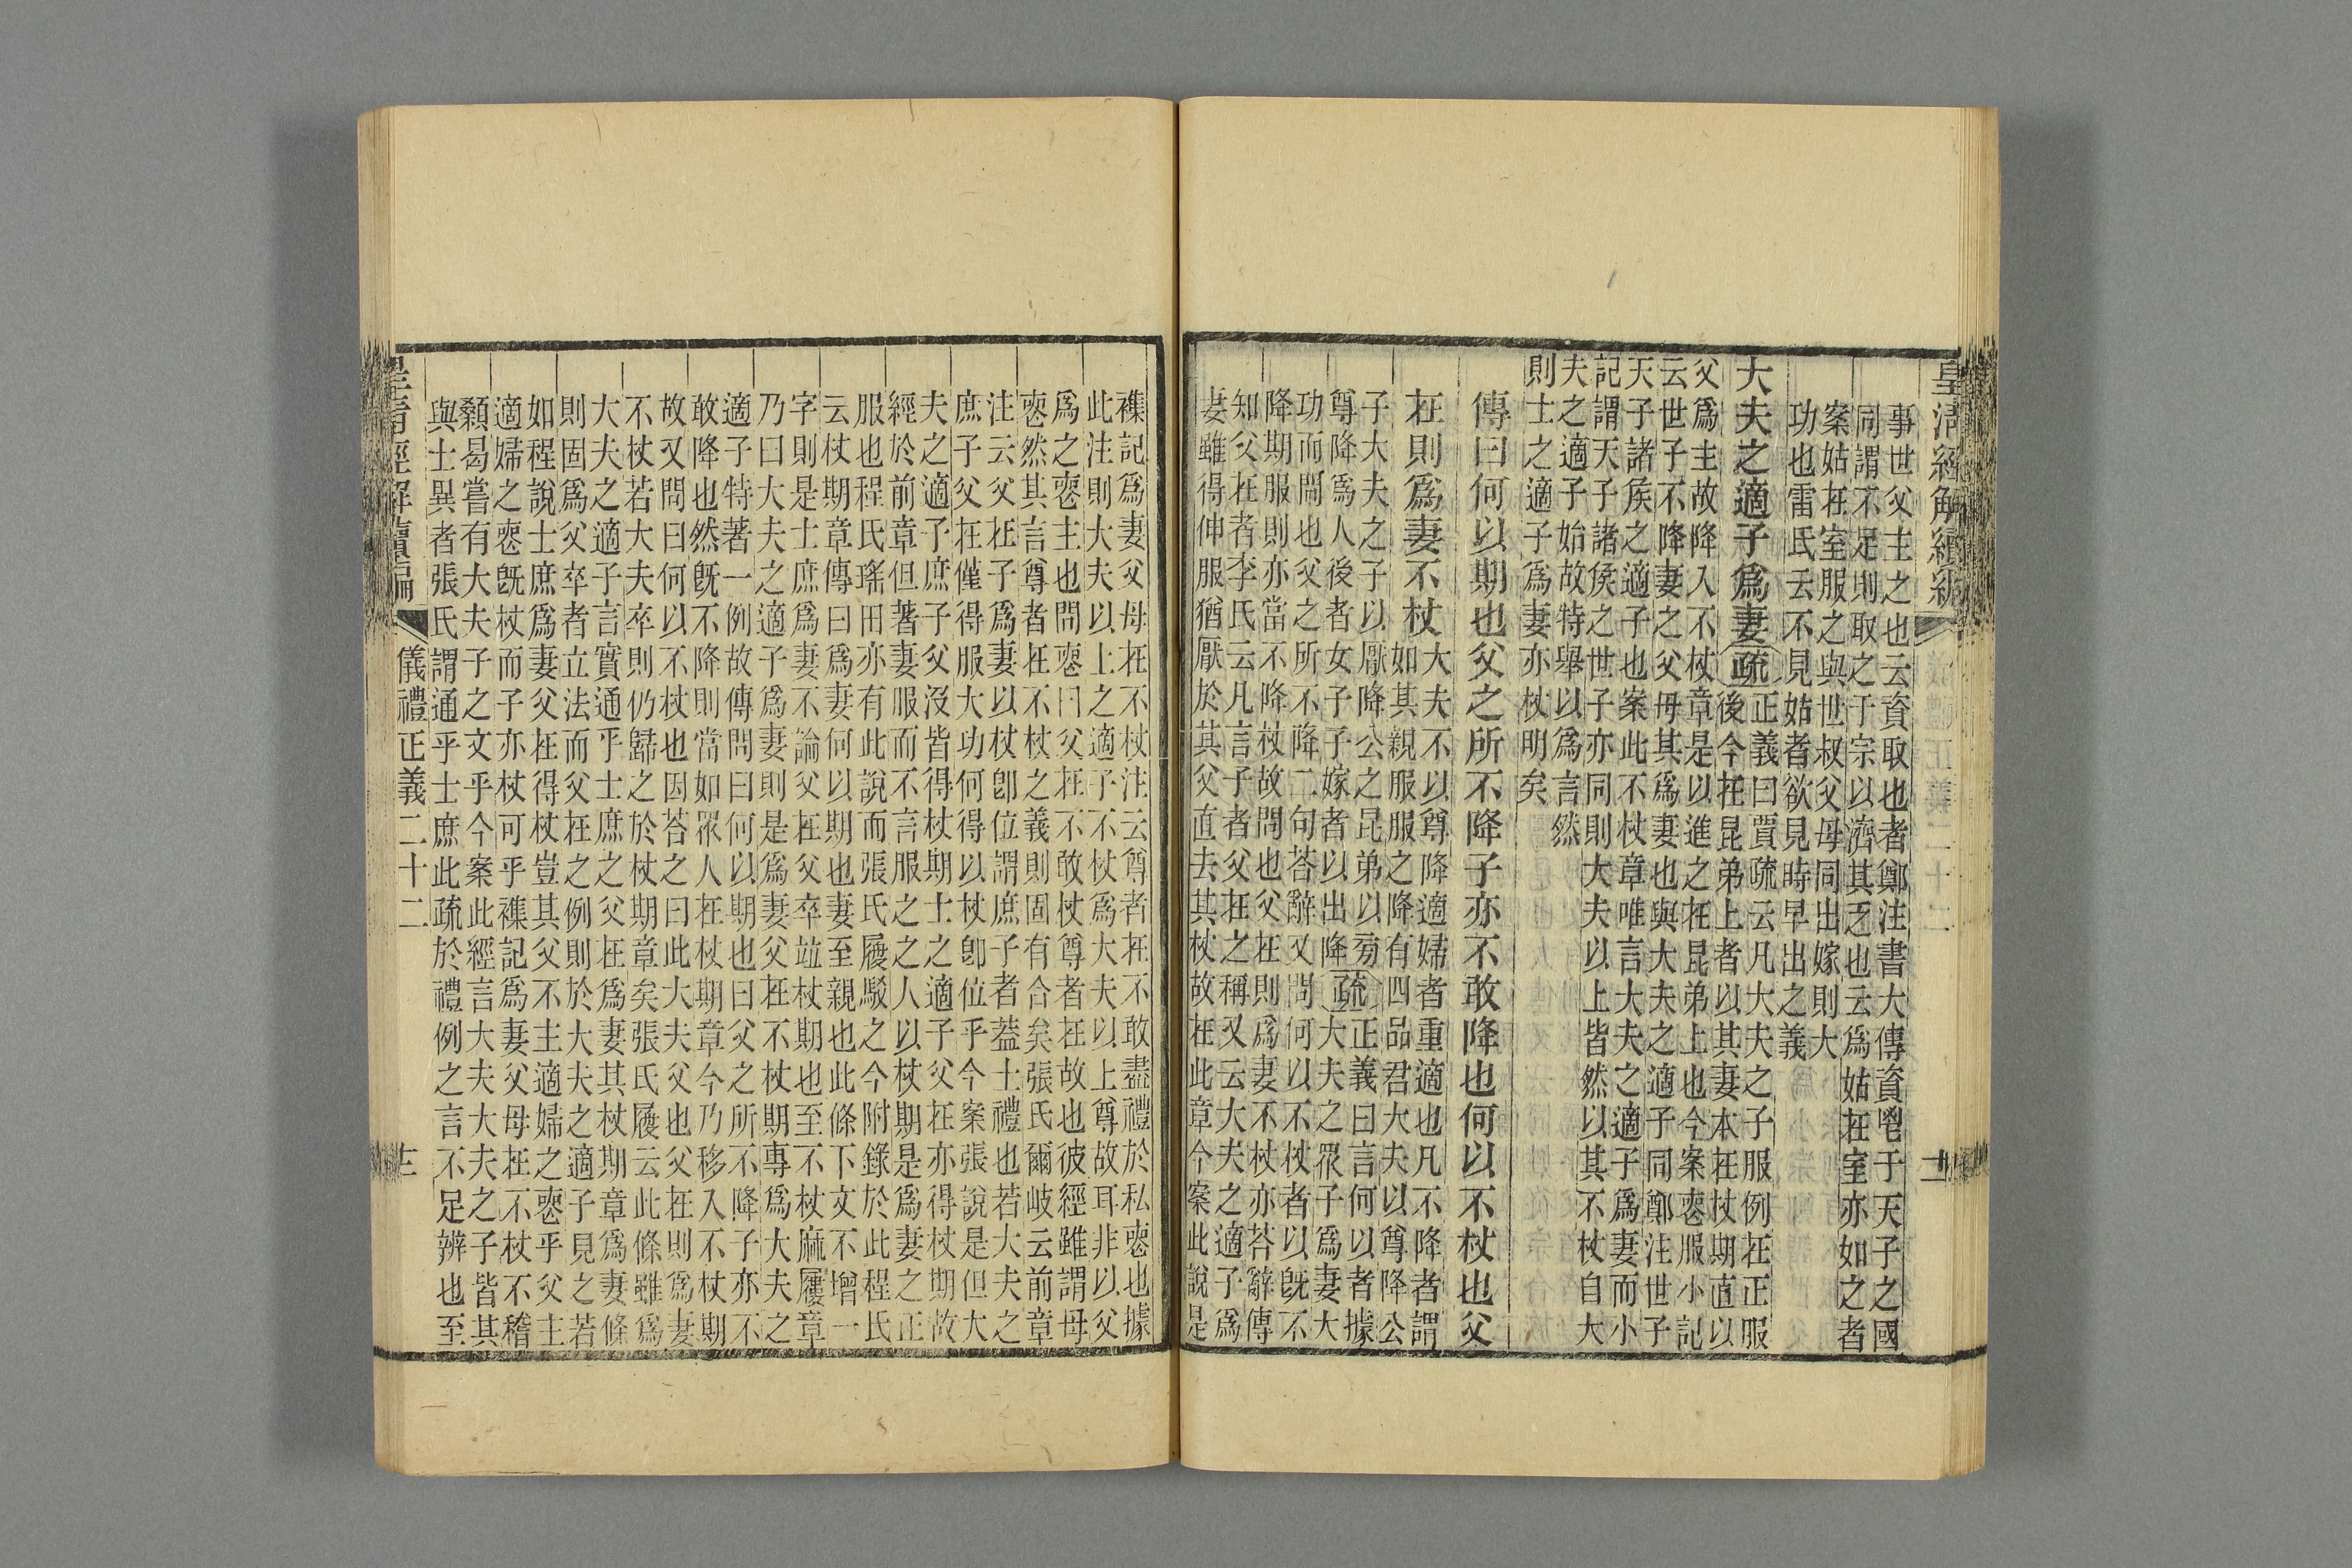 皇清經解續編
事世父主之也云資取也者鄭注書大傳資鬯于天子之國
同謂不足則取之于宗以濟其乏也云爲姑在室亦如之者
案姑在室服之與世叔父母同出嫁則大
功也雷氏云不見姑者欲見時早出之義
大夫之適子爲妻疏
正義曰賈疏云凡大夫之子服例在正服
後今在昆弟上者以其妻本在杖期直以
父爲主故降入不杖章是以進之在昆弟上也今案喪服小記
云世子不降妻之父母其爲妻也與大夫之適子同鄭注世子
天子諸侯之適子也案此不杖章唯言大夫之適子爲妻而小
記謂天子諸侯之世子亦同則大夫以上皆然以其不杖自大
夫之適子始故特舉以爲言然
則士之適子爲妻亦杖明矣
傳曰何以期也父之所不降子亦不敢降也何以不杖也父
在則爲妻不杖
大夫不以尊降適婦者重適也凡不降者謂
如其親服服之降有四品君大夫以尊降公
子大夫之子以厭降公之昆弟以旁
尊降爲人後者女子子嫁者以出降疏
正義曰言何以者據
大夫之衆子爲妻大
功而問也父之所不降二句荅辭又問何以不杖者以旣不
降期服則亦當不降杖故問也父在則爲妻不杖亦荅辭傳
知父在者李氏云凡言子者父在之稱又云大夫之適子爲
妻雖得伸服猶厭於其父直去其杖故在此章今案此說是
襍記爲妻父母在不杖注云尊者在不敢盡禮於私喪也據
此注則大夫以上之適子不杖爲大夫以上尊故耳非以父
爲之喪主也問喪曰父在不敢杖尊者在故也彼經雖謂母
喪然其言尊者在不杖之義則固有合矣張氏爾岐云前章
注云父在子爲妻以杖卽位謂庶子者葢士禮也若大夫之
庶子父在僅得服大功何得以杖卽位乎今案張說是但大
夫之適子庶子父沒皆得杖期士之適子父在亦得杖期故
經於前章但著妻服而不言服之之人以杖期是爲妻之正
服也程氏瑤田亦有此說而張氏履駁之今附錄於此程氏
云杖期章傳曰爲妻何以期也妻至親也此條下文不增一
字則是士庶爲妻不論父在父卒竝杖期也至不杖麻屨章
乃曰大夫之適子爲妻則是爲妻父在不杖期專爲大夫之
適子特著一例故傳問曰何以期也曰父之所不降子亦不
敢降也然旣不降則當如衆人在杖期章今乃移入不杖期
故又問曰何以不杖也因荅之曰此大夫父也父在則爲妻
不杖若大夫卒則仍歸之於杖期章矣張氏履云此條雖爲
大夫之適子言實通乎士庶之父在爲妻其杖期章爲妻條
則固爲父卒者立法而父在之例則於大夫之適子見之若
如程說士庶爲妻父在得杖豈其父不主適婦之喪乎父主
適婦之喪旣杖而子亦杖可乎襍記爲妻父母在不杖不稽
顙曷嘗有大夫子之文乎今案此經言大夫大夫之子皆其
與士異者張氏謂通乎士庶此疏於禮例之言不足辨也至
儀禮正義二十二